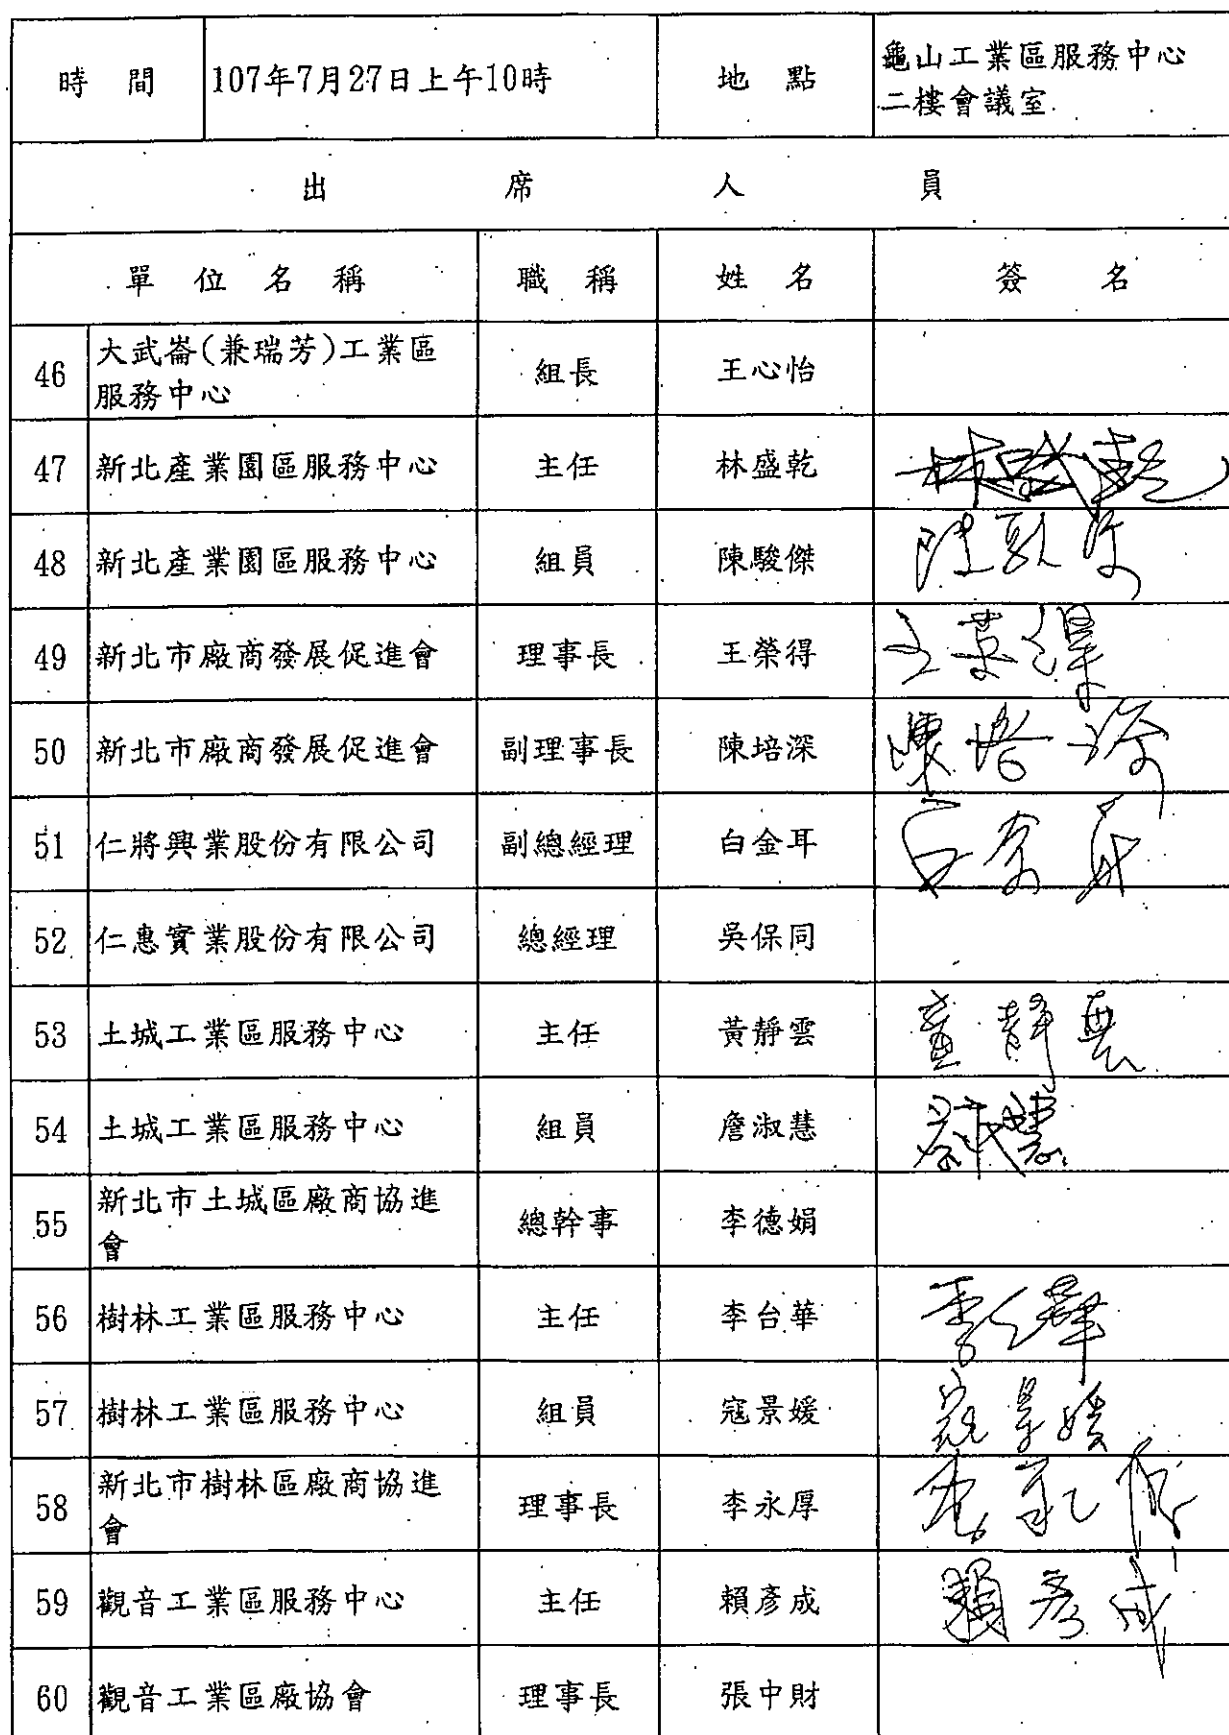 時 間 107年7月27日上午10時 地 點 龜山工業區服務中心
二樓會議室
出 席 人 員
單 位 名 稱 職 稱 姓 名 簽 名
46 大武崙(兼瑞芳)工業區 組長 王心怡
服務中心
47 新北產業園區服務中心 主任 林盛乾 林盛乾
48 新北產業園區服務中心 組員 陳駿傑
49 新北市廠商發展促進會 理事長 王榮得
50 新北市廠商發展促進會 副理事長 陳培深 陳培深
51 仁將興業股份有限公司 副總經理 白金耳
52 仁惠實業股份有限公司 總經理 吳保同
53 土城工業區服務中心 主任 黃靜雲 黃靜雲
54 土城工業區服務中心 組員 詹淑慧
55 新北市土城區廠商協進 總幹事 李德娟
會
56 樹林工業區服務中心 主任 李台華
57 樹林工業區服務中心 組員 寇景媛 寇景媛
58 新北市樹林區廠商協進 理事長 李永厚
會
59 觀音工業區服務中心 主任 賴彥成 賴彥成
60 觀音工業區廠協會 理事長 張中財